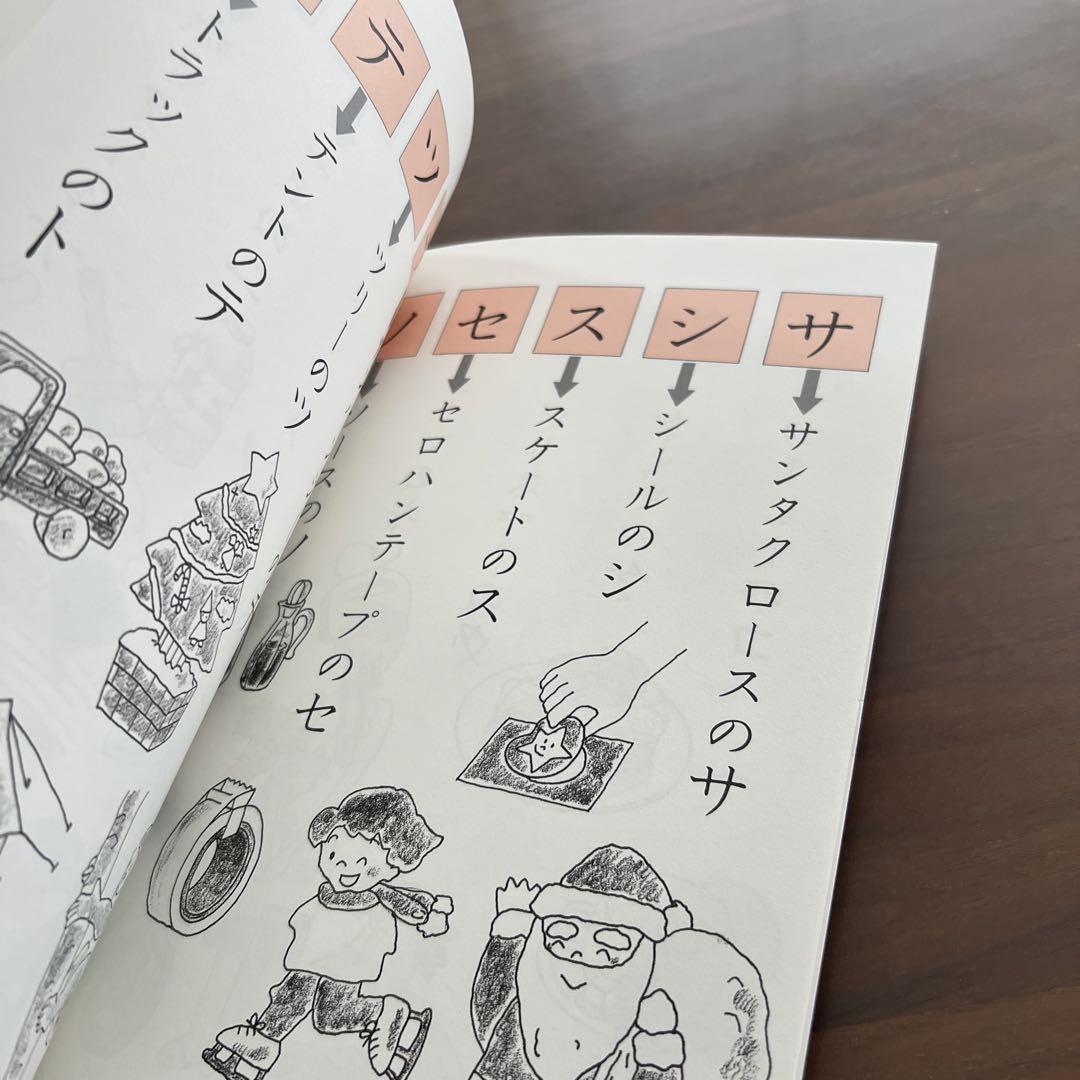 サ
サンタクロースのサ
シ
シールのシ
ス
スケートのス
セ
セロハンテープのセ
ソ
ソースのソ
ツ
ツリーのツ
テ
テントのテ
トラックのト